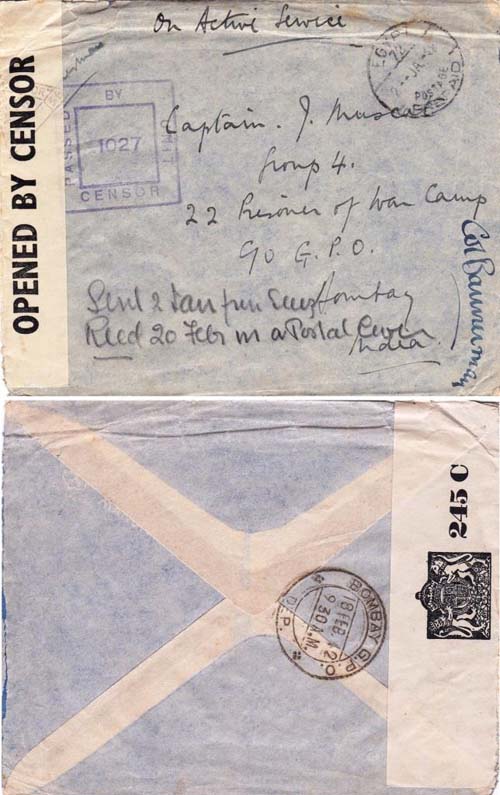 On Active Service
OPENED BY CENSOR
PASSED BY
1027
CENSOR
EGYPT
POSTAGE
PREPAID
Captain. J.
Group 4.
22 Prisoner of War Camp
G.P.O.
Bombay
India.
Sent 2 Jan from Suez
Recd 20 Feb in a Postal Cover
Col Bannerman
245 C
BOMBAY G.P.O.
18 FEB. 42
9.30 A.M.
DEP.